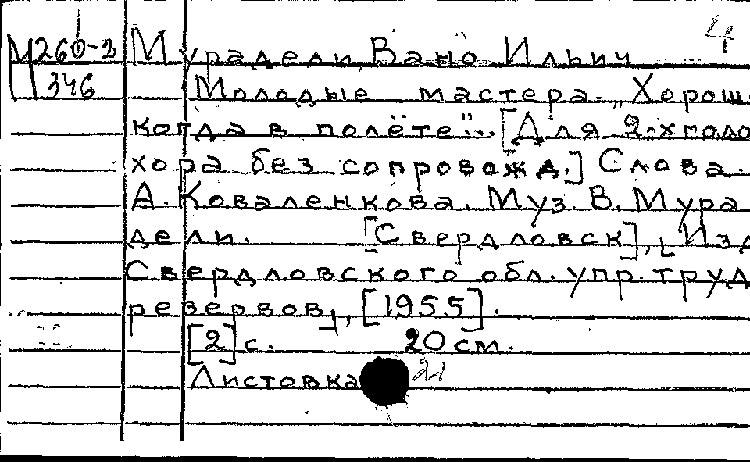 4
М260-2 Мурадели Вано Ильич
346 Молодые мастера. „Хорош
когда в полёте". [Для 2-хголо
хора без сопровожд.] Слова.
А. Коваленкова. Муз. В. Мура
дели. [Свердловск], [Изд
Свердловского обл. упр. труд
резервов], [1955].
[2] с. 20 см.
Листовка 21